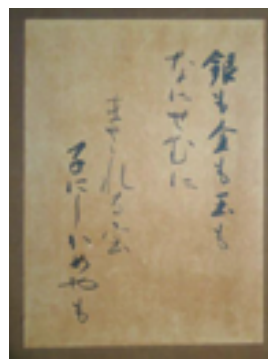 銀も金も玉も
なにせむに
まされる宝
子にしかめやも